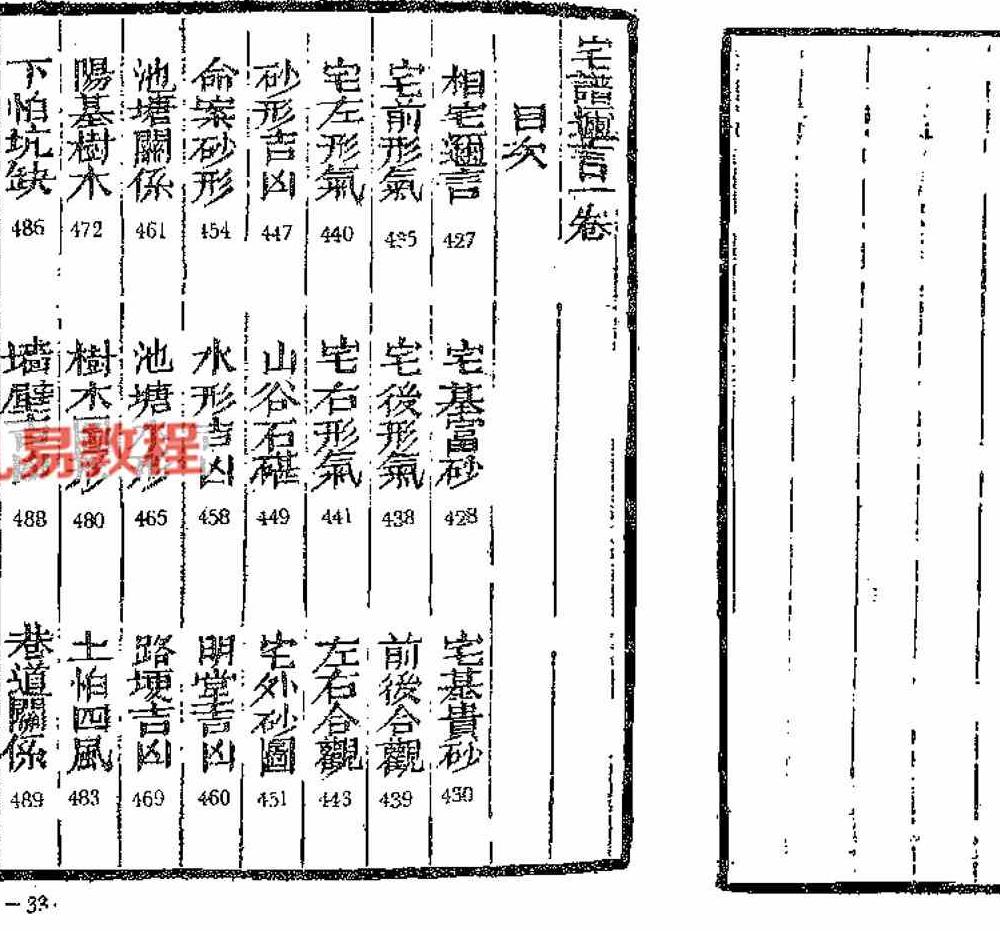 宅譜邇言一卷
目次
相宅邇言 427
宅基富砂 428
宅基貴砂 430
宅前形氣 435
宅後形氣 438
前後合觀 439
宅左形氣 440
宅右形氣 441
左右合觀 443
砂形吉凶 447
山谷石碪 449
宅外砂圖 451
命案砂形 454
水形吉凶 458
明堂吉凶 460
池塘關係 461
池塘形 465
路埂吉凶 469
陽基樹木 472
樹木圖形 480
土怕四風 483
下怕坑缺 486
墻壁吉 488
巷道關係 489
易教程
-33.